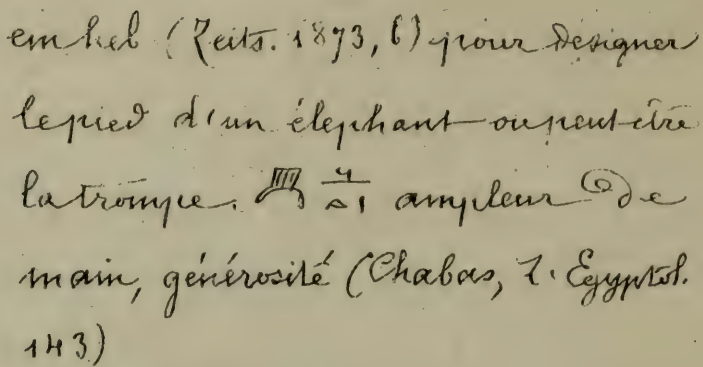 em heb (Zeits. 1873, 6) pour désigner
le pied d'un éléphant ou peut-être
la trompe. ampleur de
main, générosité (Chabas, Z. Egyptol.
143)